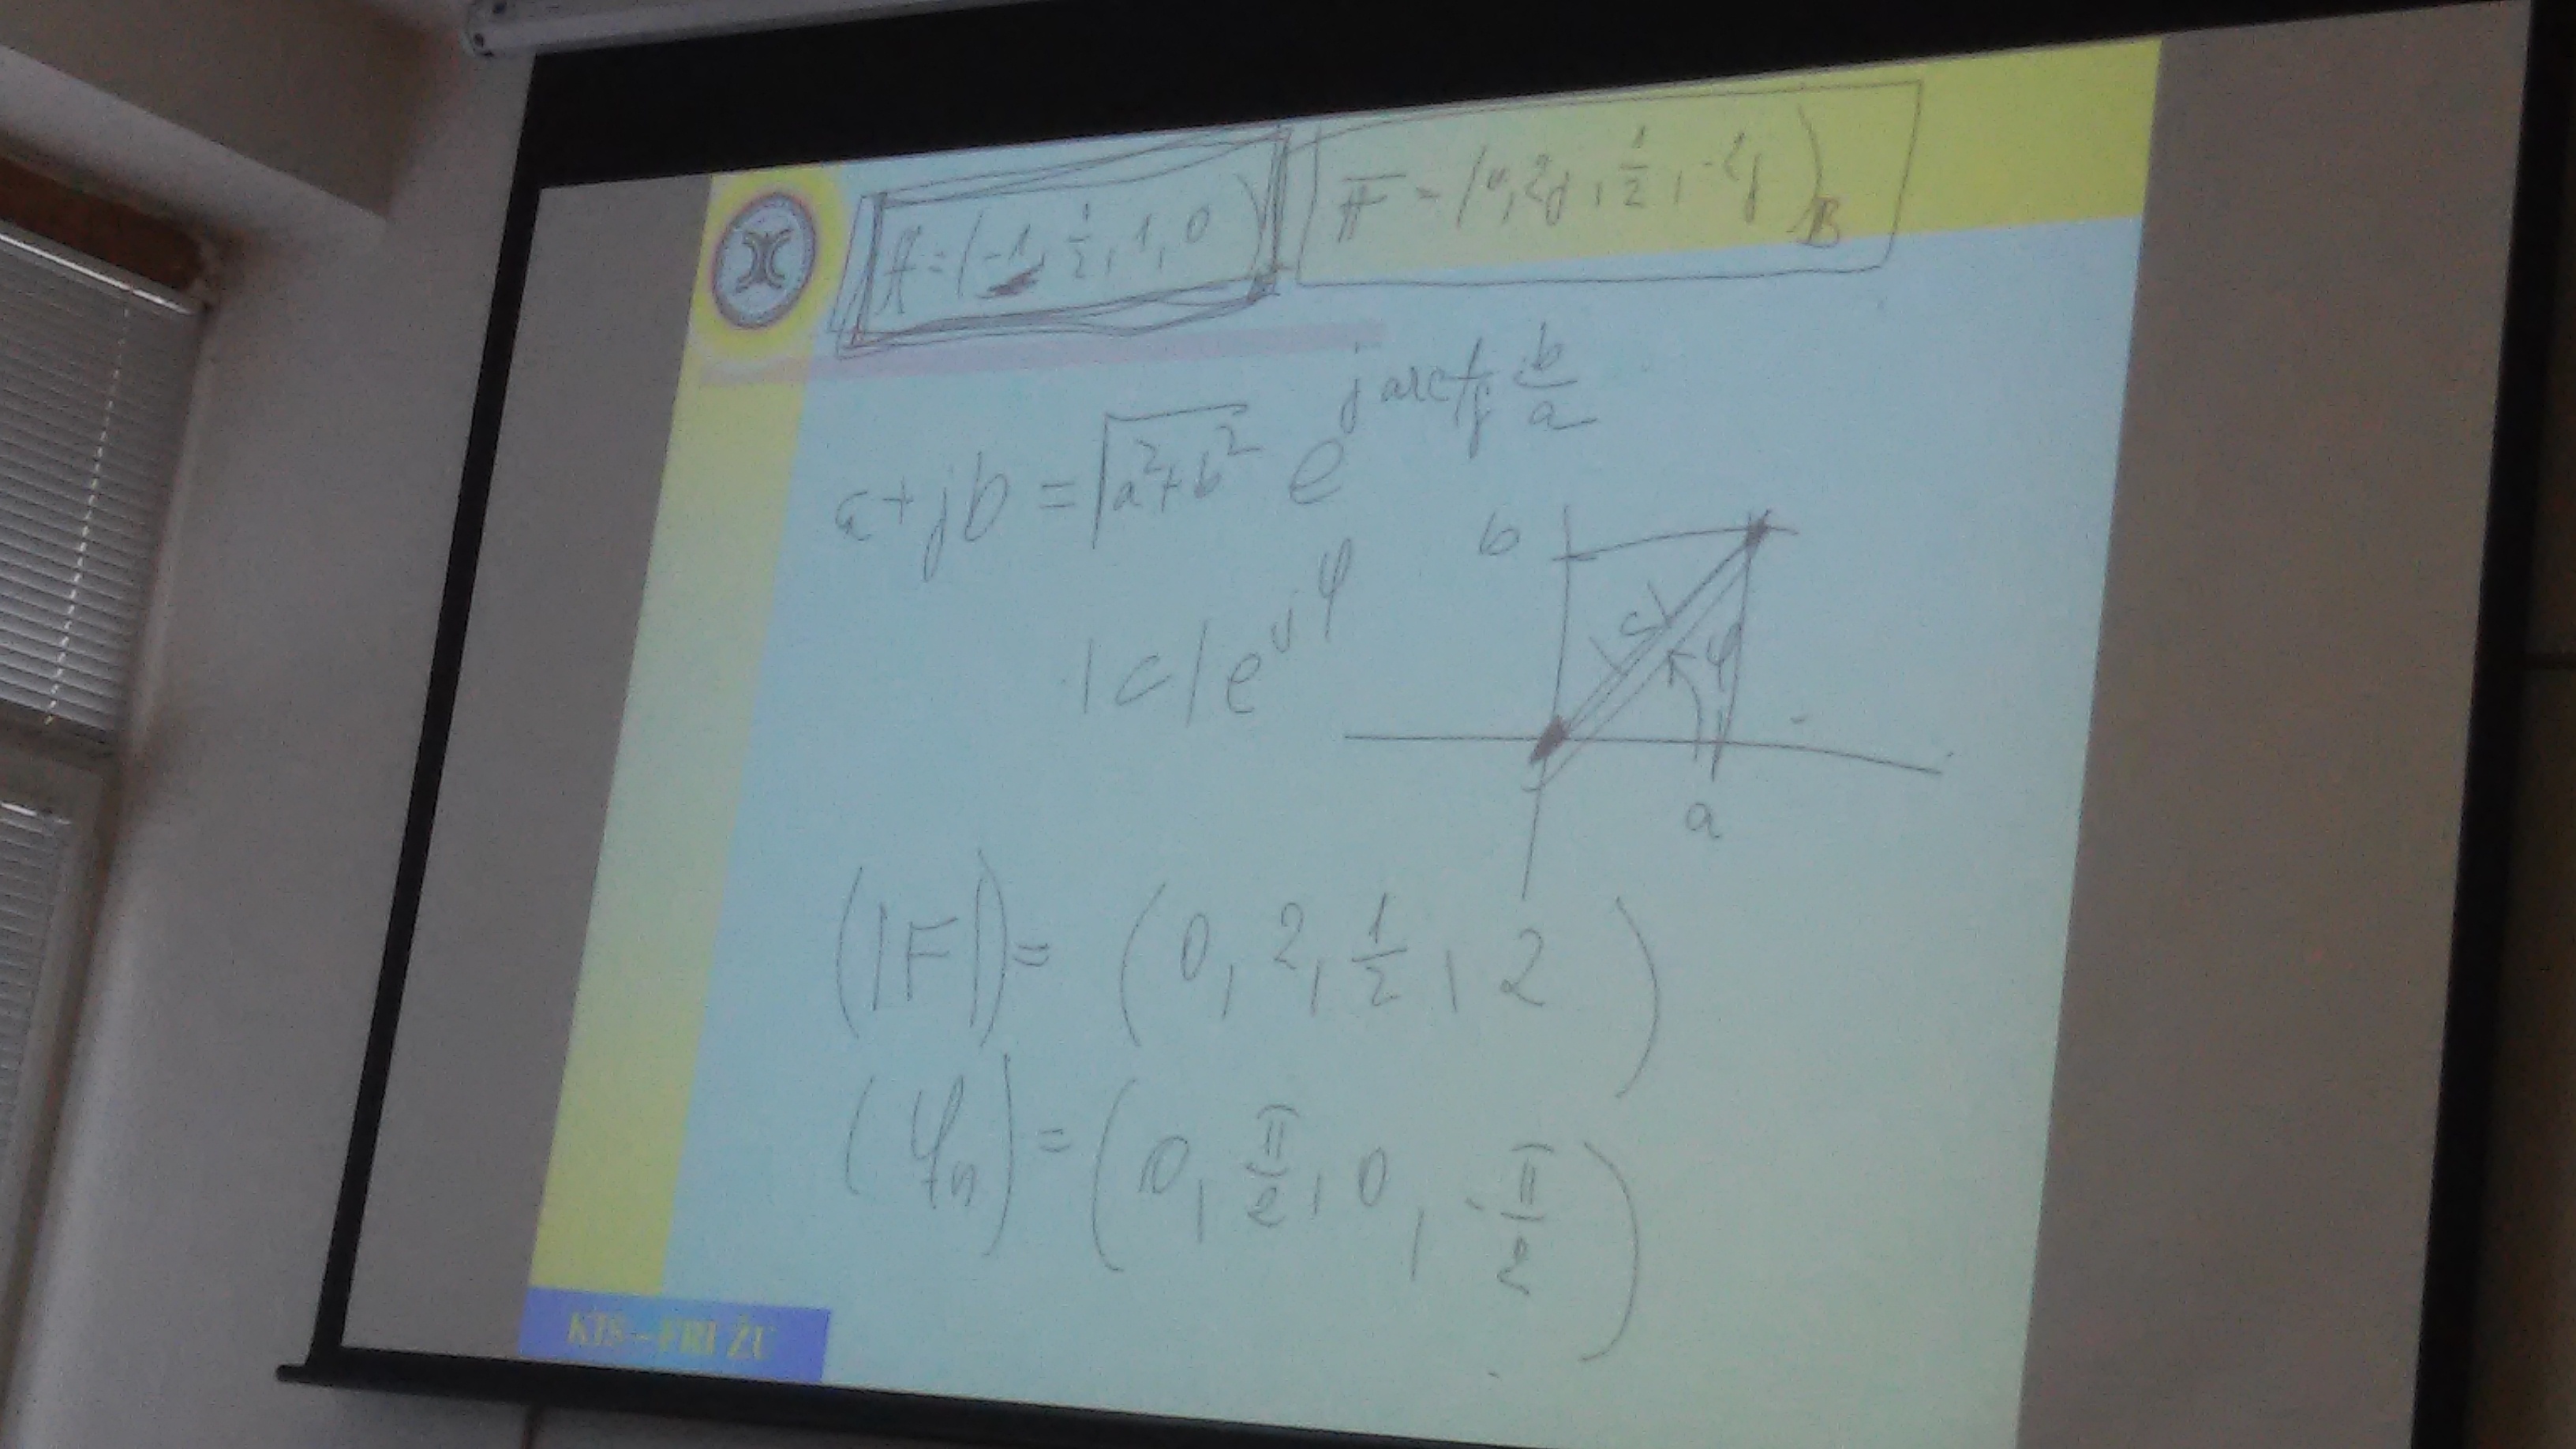 = (-1, 1/2, 1, 0)
= (0, 2j, 1/2, -2j)B
a+jb = √(a²+b²) e^(j arctg b/a)
|c| e^(jφ)
b
c
φ
a
(|F|) = (0, 2, 1/2, 2)
(φn) = (0, π/2, 0, -π/2)
KIS – FRI ŽU